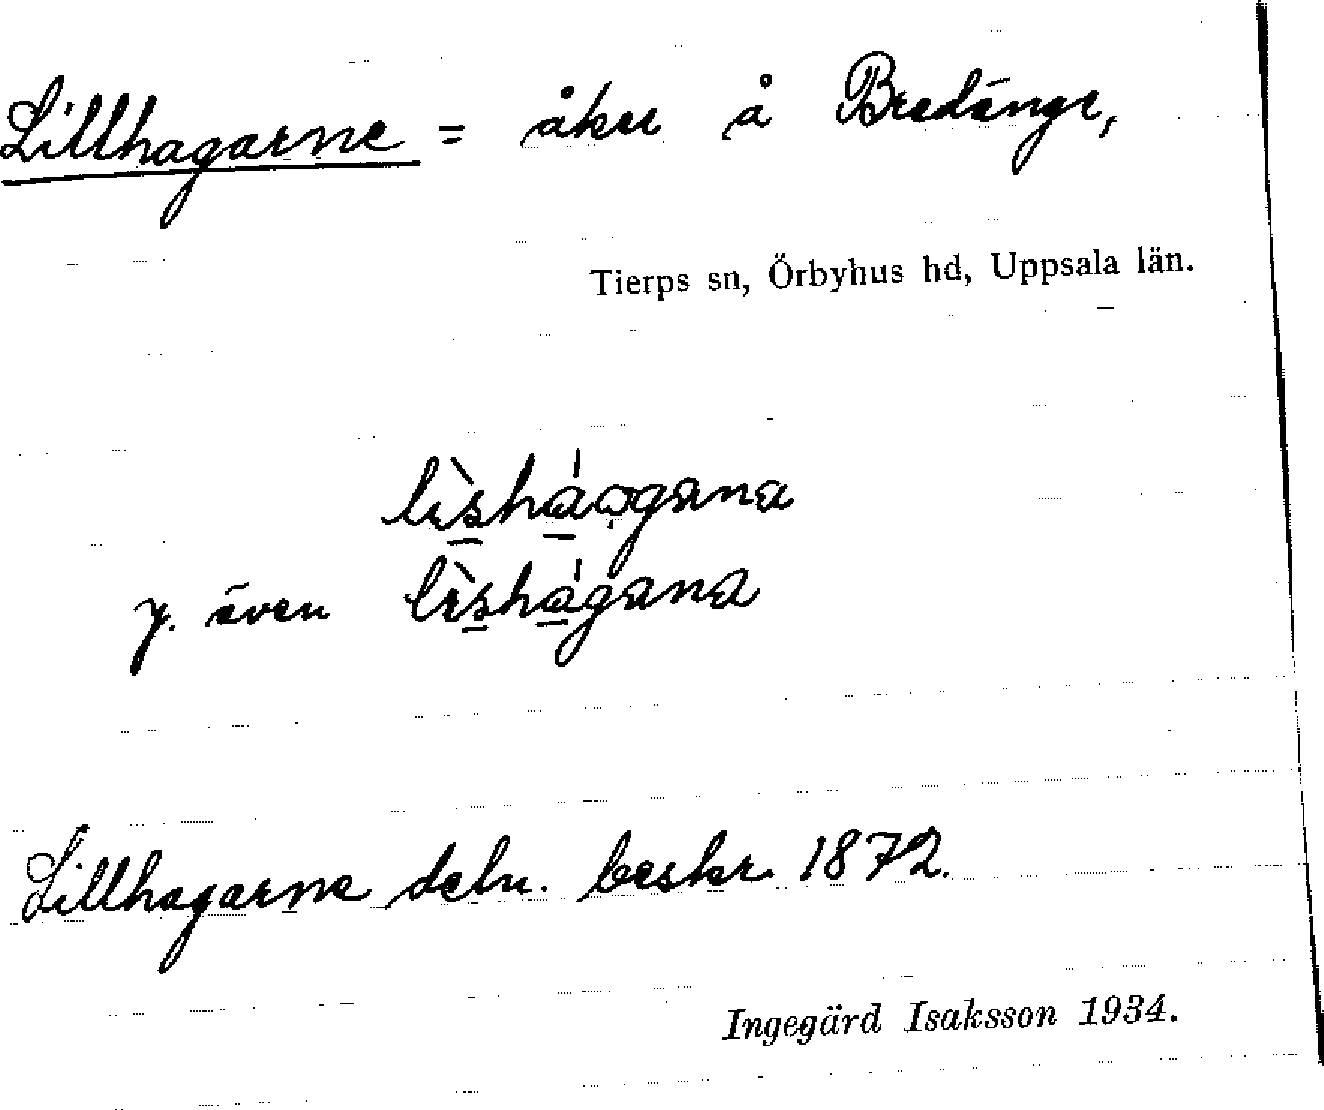 Lillhagarne = åker å Bredänge,
Tierps sn, Örbyhus hd, Uppsala län.
lìshá̀ǫgana
y. även lìshágana
Lillhagarne deln. beskr. 1872.
Ingegärd Isaksson 1934.